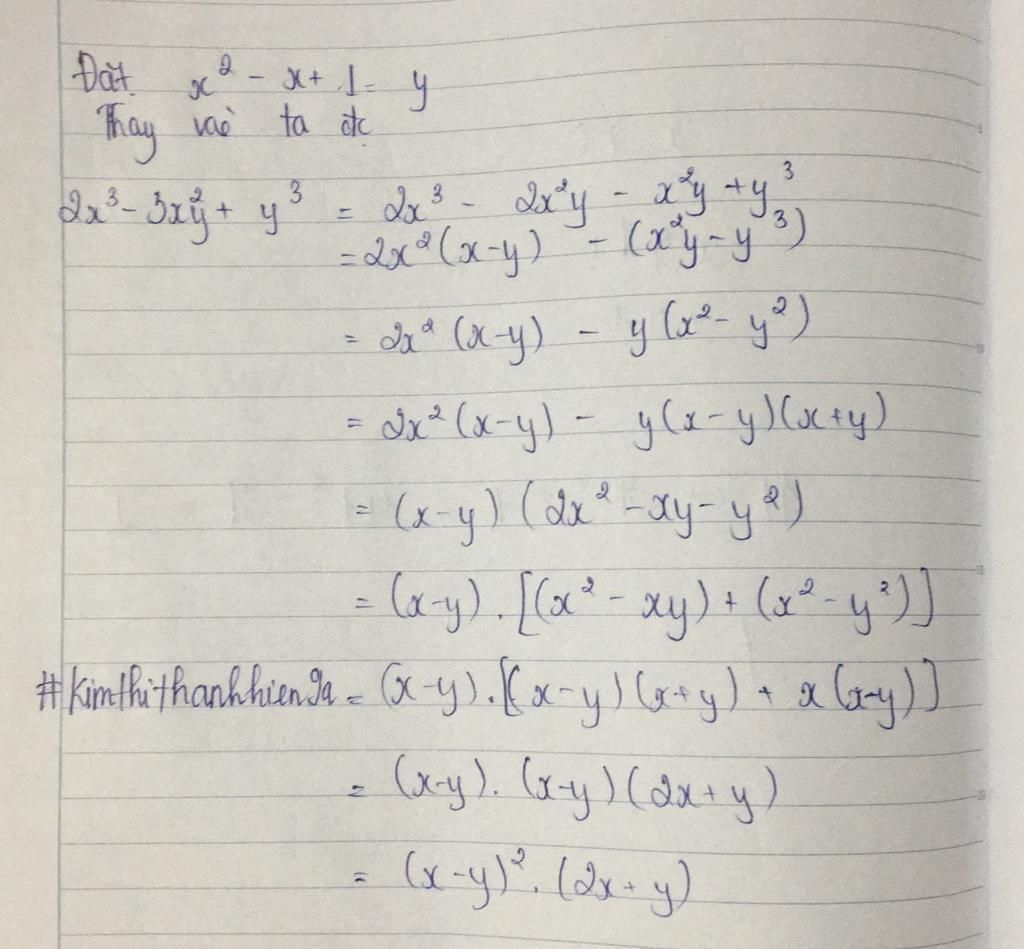 Đặt x² - x + 1 = y
Thay vào ta đc
2x³ - 3x²y + y³ = 2x³ - 2x²y - x²y + y³
= 2x²(x-y) - (x²y - y³)
= 2x²(x-y) - y(x² - y²)
= 2x²(x-y) - y(x-y)(x+y)
= (x-y)(2x² - xy - y²)
= (x-y).[(x² - xy) + (x² - y²)]
#kimthithanhhien9a = (x-y).[(x-y)(x+y) + x(x-y)]
= (x-y).(x-y)(2x+y)
= (x-y)².(2x+y)